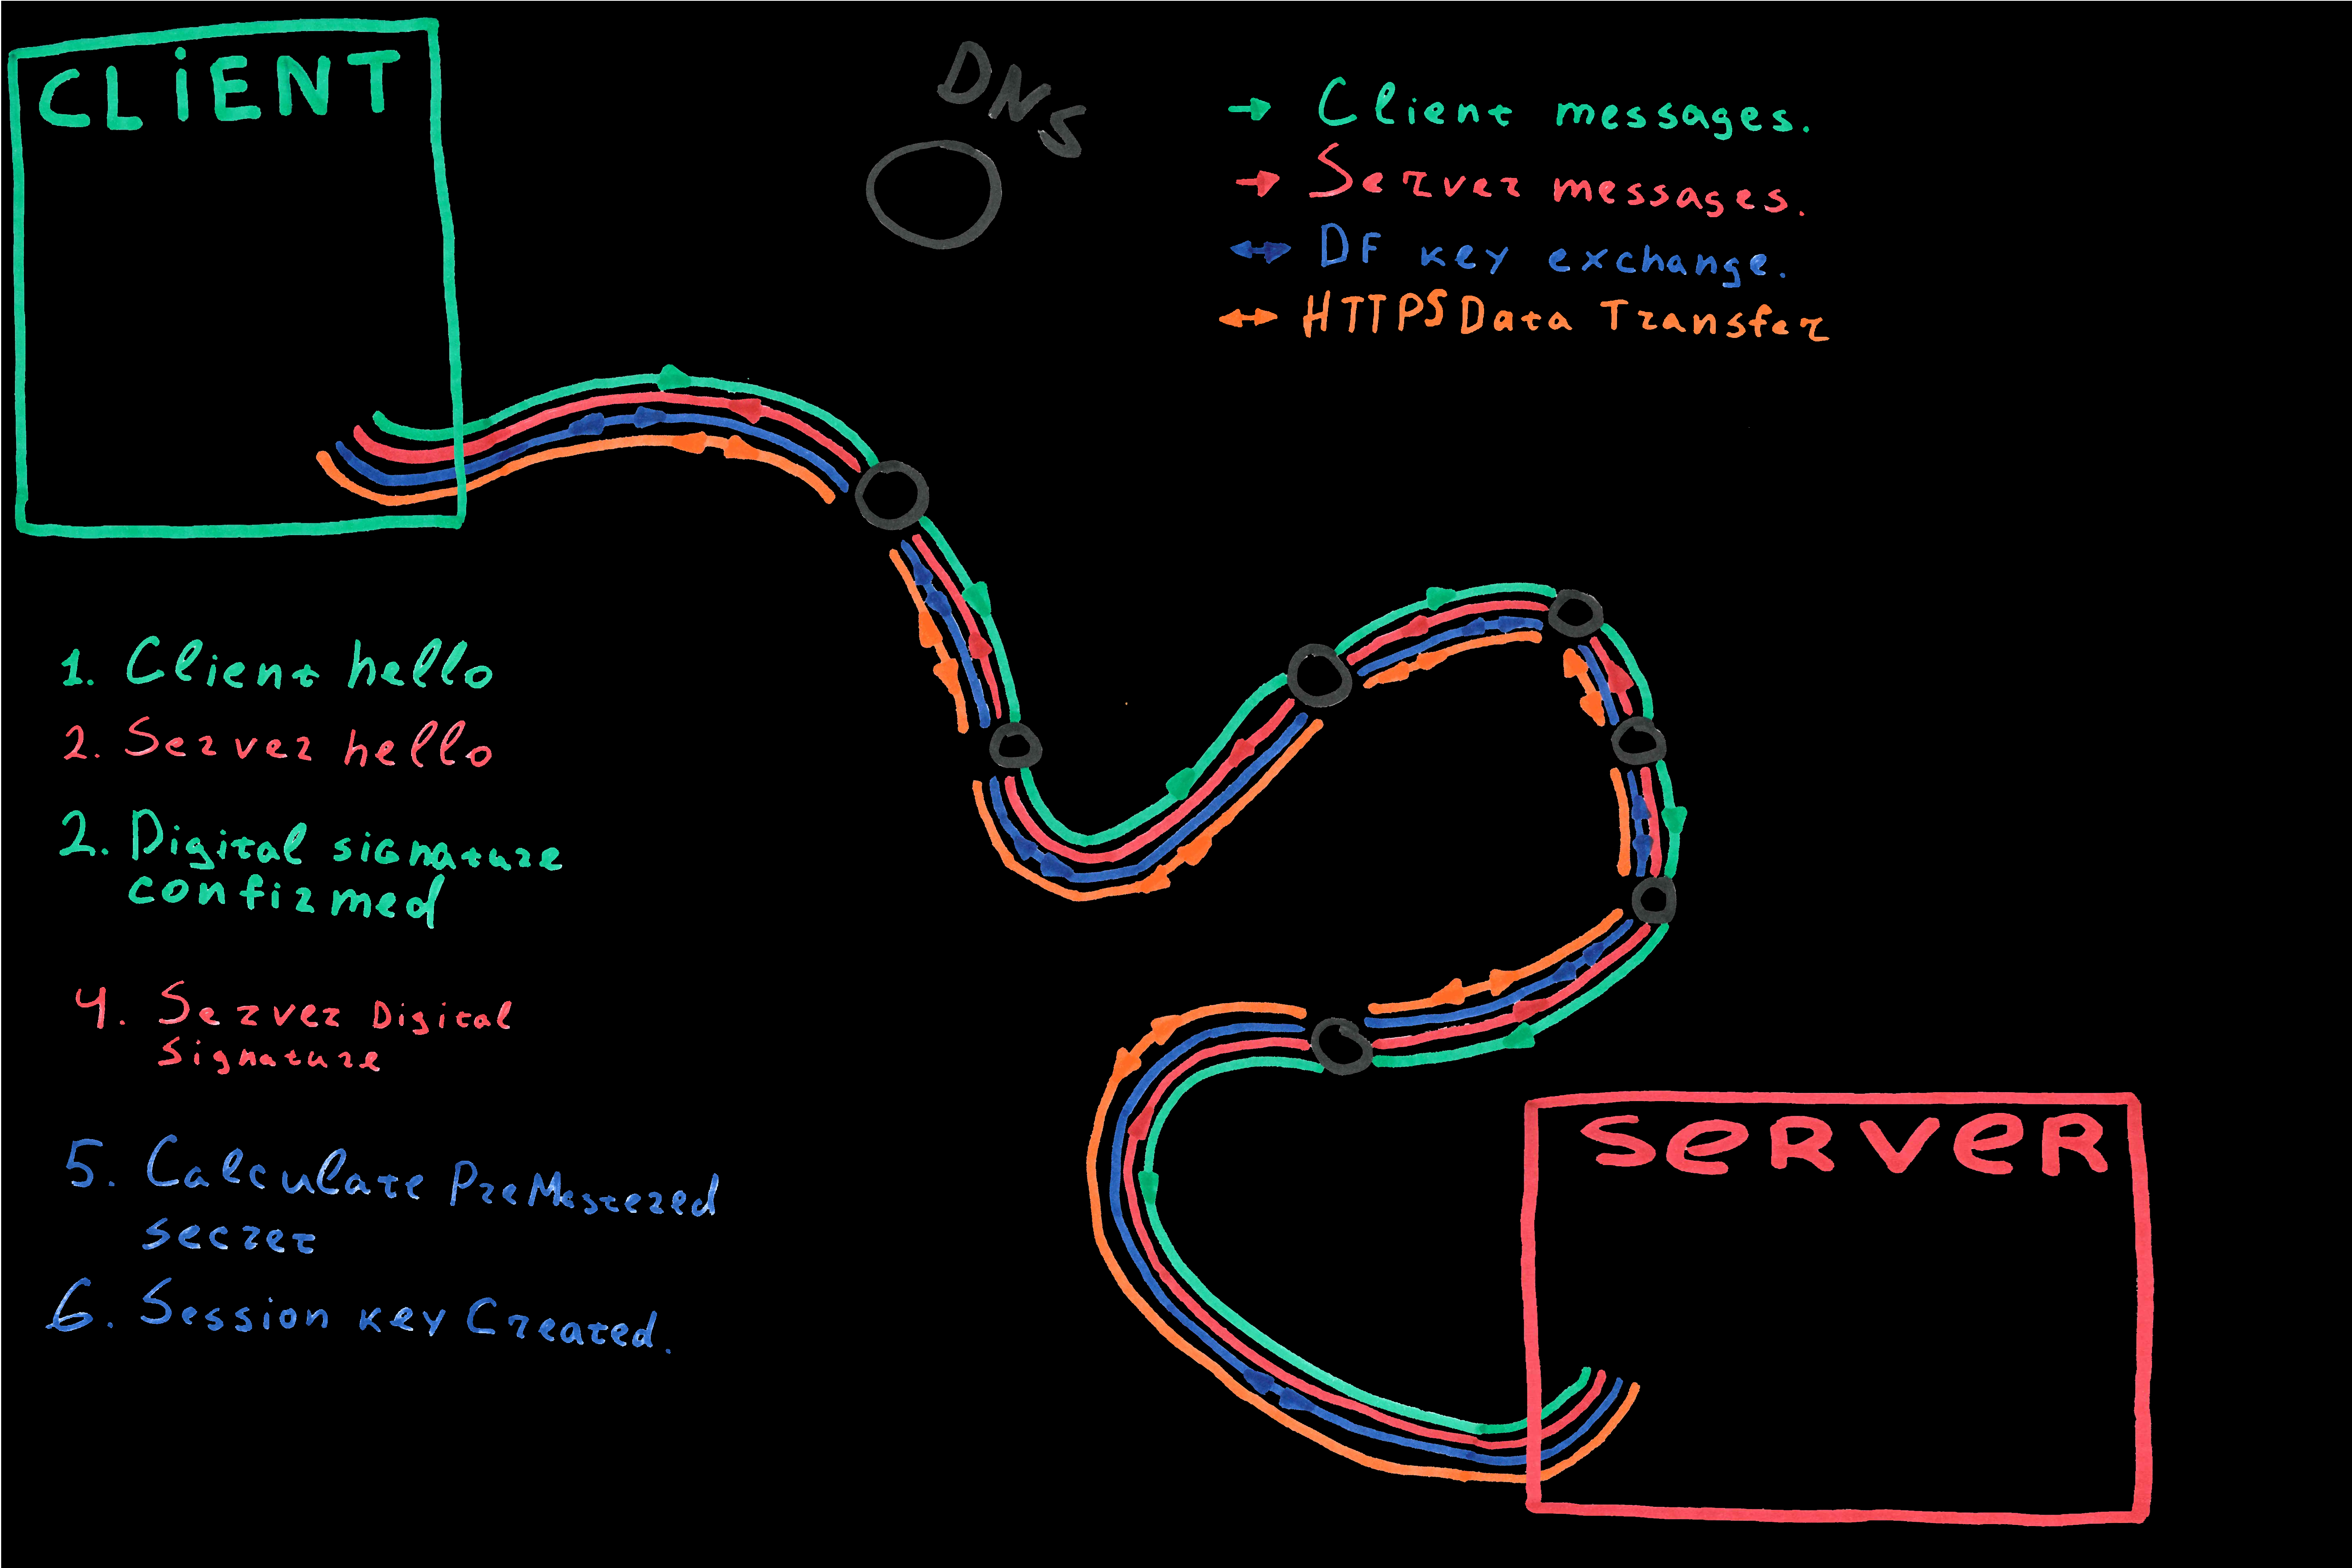 CLiENT
DNS
Client messages.
Server messages.
DF key exchange.
HTTPS Data Transfer
1. Client hello
2. Server hello
2. Digital signature
confirmed
4. Server Digital
Signature
5. Calculate PreMastered
secret
6. Session key Created.
SeRVeR